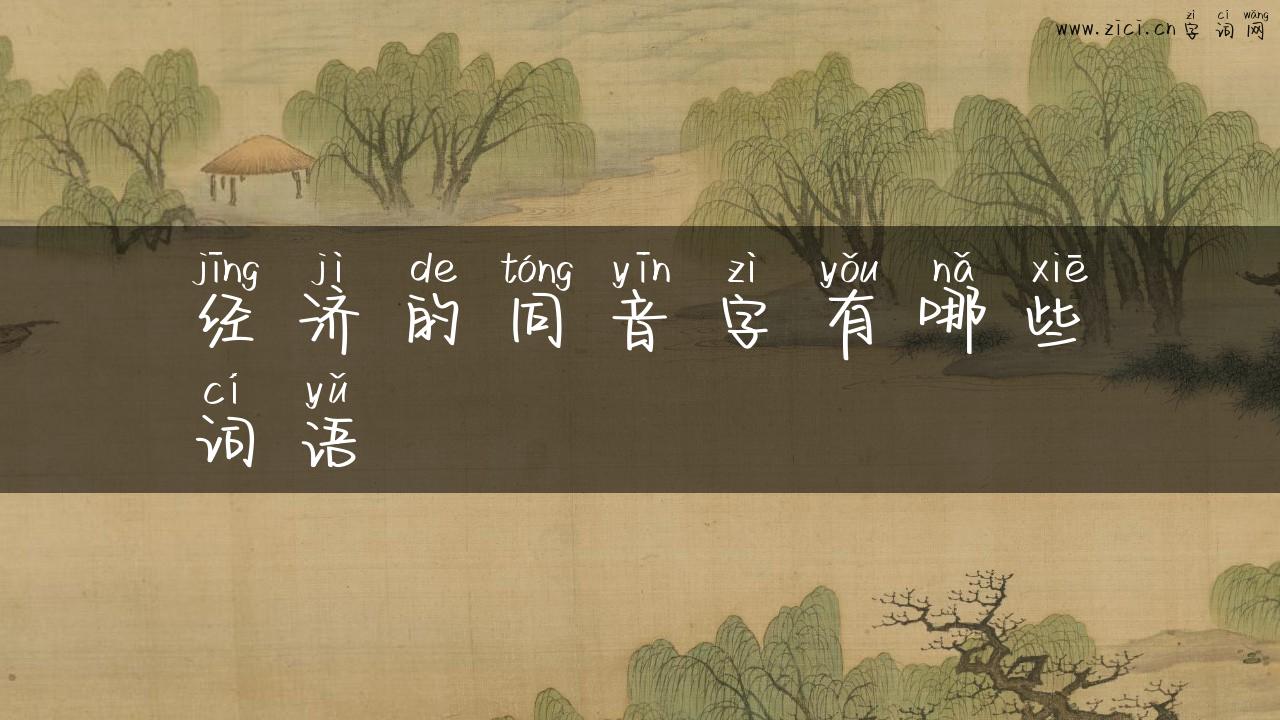 zì cí wǎng
www.zici.cn 字词网
jīng jì de tóng yīn zì yǒu nǎ xiē
经济的同音字有哪些
cí yǔ
词语